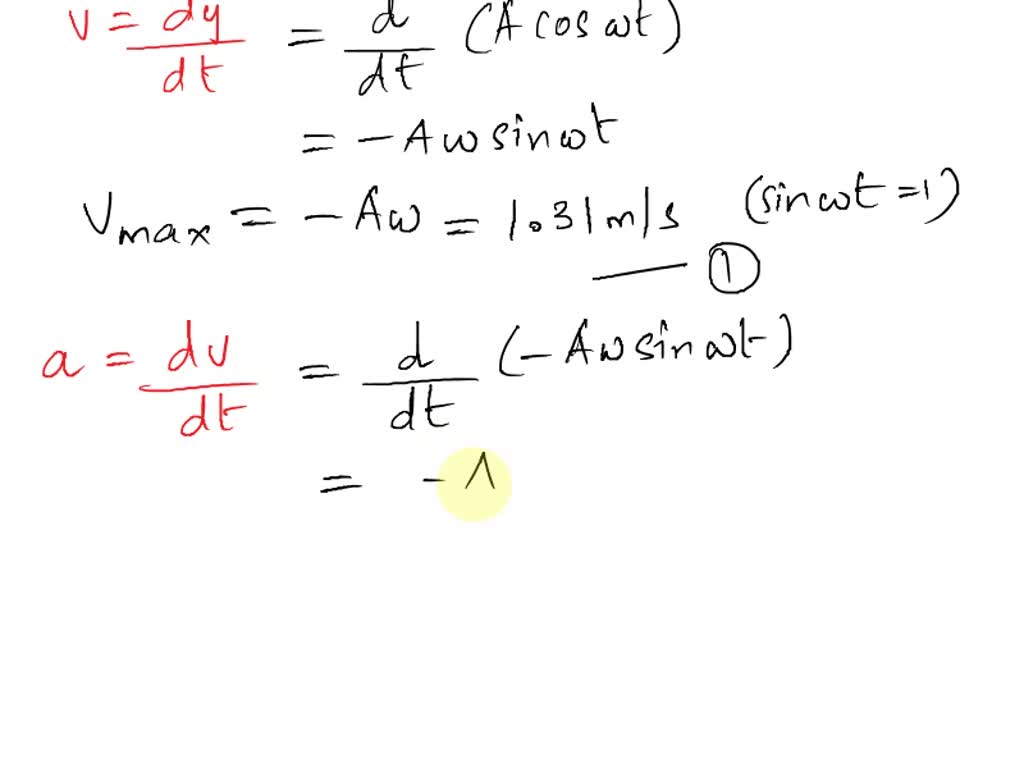 v = dy/dt = d/dt (A cos ωt)
= - A ω sin ωt
Vmax = - Aω = 1.31 m/s (sin ωt = 1)
—— ①
a = dv/dt = d/dt (- A ω sin ωt)
= - A